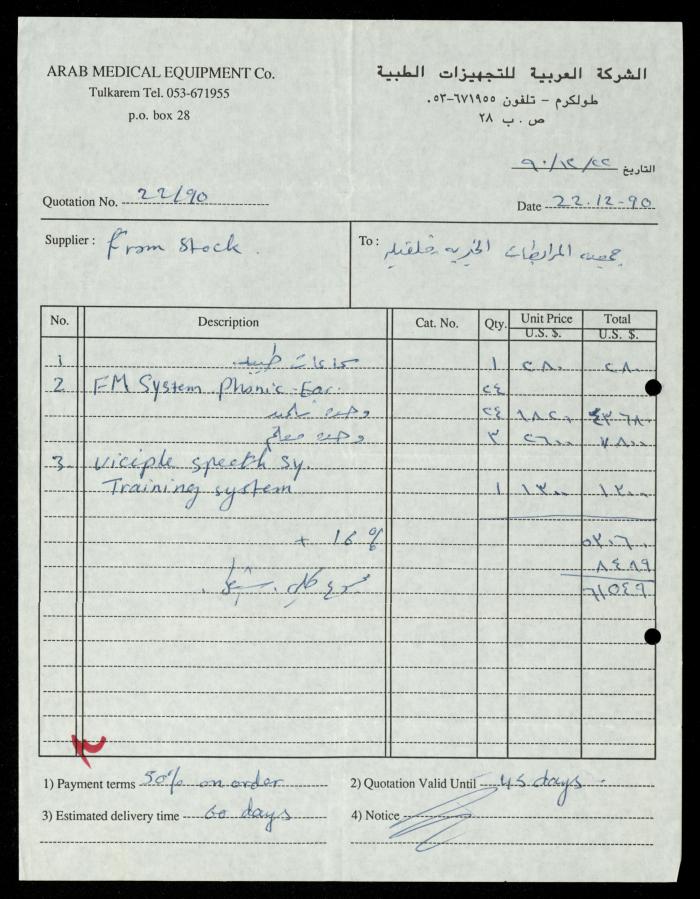 ARAB MEDICAL EQUIPMENT Co.
Tulkarem Tel. 053-671955
p.o. box 28
الشركة العربية للتجهيزات الطبية
طولكرم - تلفون ٦٧١٩٥٥-٠٥٣
ص . ب ٢٨
التاريخ ٩٠/١٢/٢٢
Quotation No. 22/90
Date 22.12-90
Supplier : From Stock.
To : جمعيه المرابطات الخيريه قلقيليه
No. Description Cat. No. Qty. Unit Price U.S. $. Total U.S. $.
1 سماعات طبيه ١ ٢٨٠ ٢٨٠
2 FM System Phonic Ear. ٢٤
وحده تلميذ ٢٤ ١٨٢٠ ٤٣٦٨٠
وحده معلم ٣ ٢٦٠٠ ٧٨٠٠
3. Viciple speeth sy.
Training system ١ ١٣٠٠ ١٣٠٠
+ 16 % ٥٣٠٦٠
٨٤٨٩
٦١٥٤٩
1) Payment terms 50% on order
2) Quotation Valid Until 45 days.
3) Estimated delivery time 60 days
4) Notice